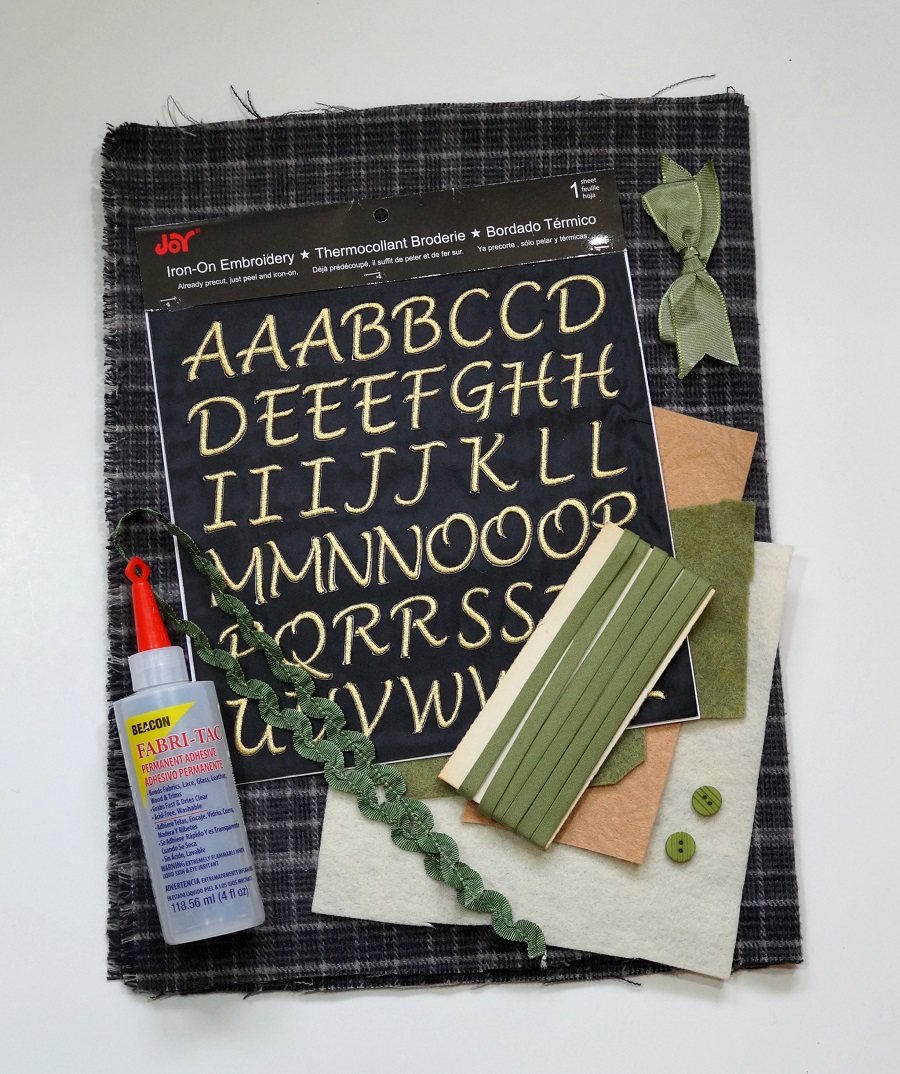 1 sheet
feuille
hoja
JOY
Iron-On Embroidery ★ Thermocollant Broderie ★ Bordado Térmico
Already precut, just peel and iron-on. Déjà prédécoupé, il suffit de peler et de fer sur. Ya precorte , sólo pelar y térmicas.
AAABBCCD
DEEEFGHH
IIIJJKLL
MMNNOOOP
PQRRSS
UVVWW
BEACON
FABRI-TAC
PERMANENT ADHESIVE
ADHESIVO PERMANENTE
-Bonds Fabrics, Lace, Glass, Leather,
Wood & Trims
-Grabs Fast & Dries Clear
-Acid-Free, Washable
-Adhiere Telas, Encaje, Vidrio, Cuero,
Madera Y Ribetes
-Se Adhiere Rápido Y es Transparente
Cuando Se Seca
-Sin Ácido, Lavable
WARNING EXTREMELY FLAMMABLE
LIQUID SKIN & EYE IRRITANT
ADVERTENCIA EXTREMADAMENTE
LIQUIDO PIEL & LOS OJOS
118.56 ml (4 fl oz)